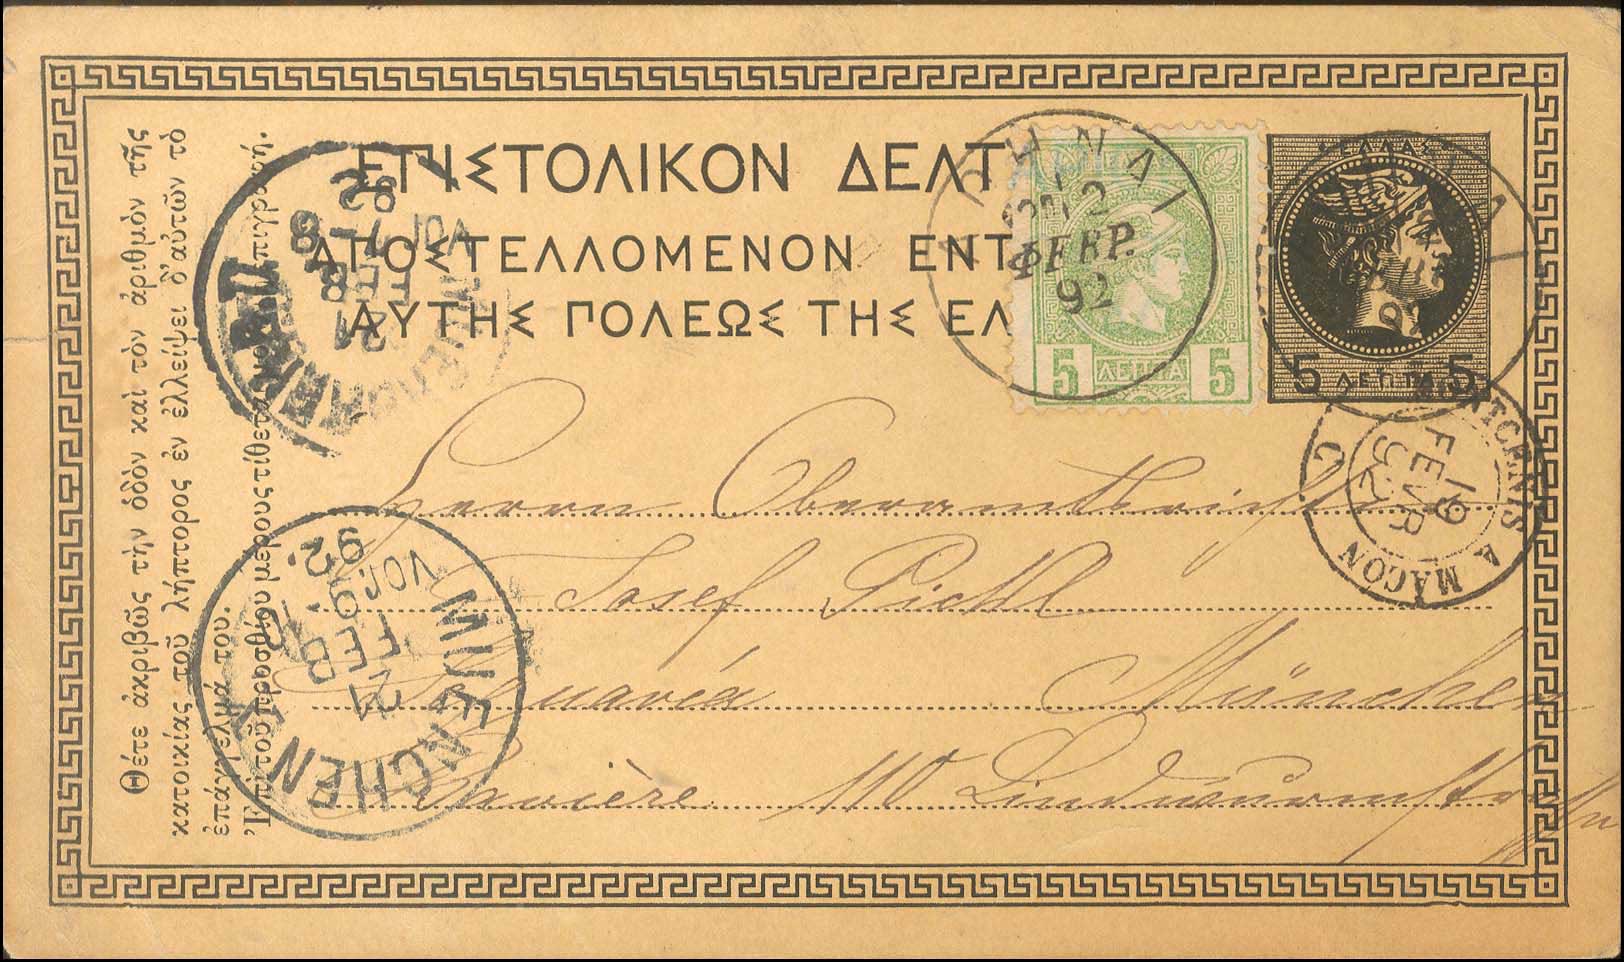 ΕΠΙΣΤΟΛΙΚΟΝ ΔΕΛΤ
ΑΠΟΣΤΕΛΛΟΜΕΝΟΝ ΕΝΤ
ΑΥΤΗΣ ΠΟΛΕΩΣ ΤΗΣ ΕΛ
Θέτε ἀκριβῶς τὴν ὁδὸν καὶ τὸν ἀριθμὸν τῆς
κατοικίας τοῦ λήπτορος ἐν ἐλλείψει δ'αὐτῶν τὸ
ἐπάγγελμά του.
Ἐπὶ τοῦ προσθίου μέρους τίθεται μόνον ἡ ἐπιγραφή.
ΑΘΗΝΑΙ
2
ΦΕΒΡ.
92
5 ΛΕΠΤΑ 5
ΕΛΛΑΣ
5 ΛΕΠΤΑ 5
A MACON
19
FEVR
92
MUENCHEN
21
FEB
VOR
92
MUENCHEN
21
FEB
7-8
VOR
92
Herrn Oberamtsricht
Josef Pichl
München
Bavière